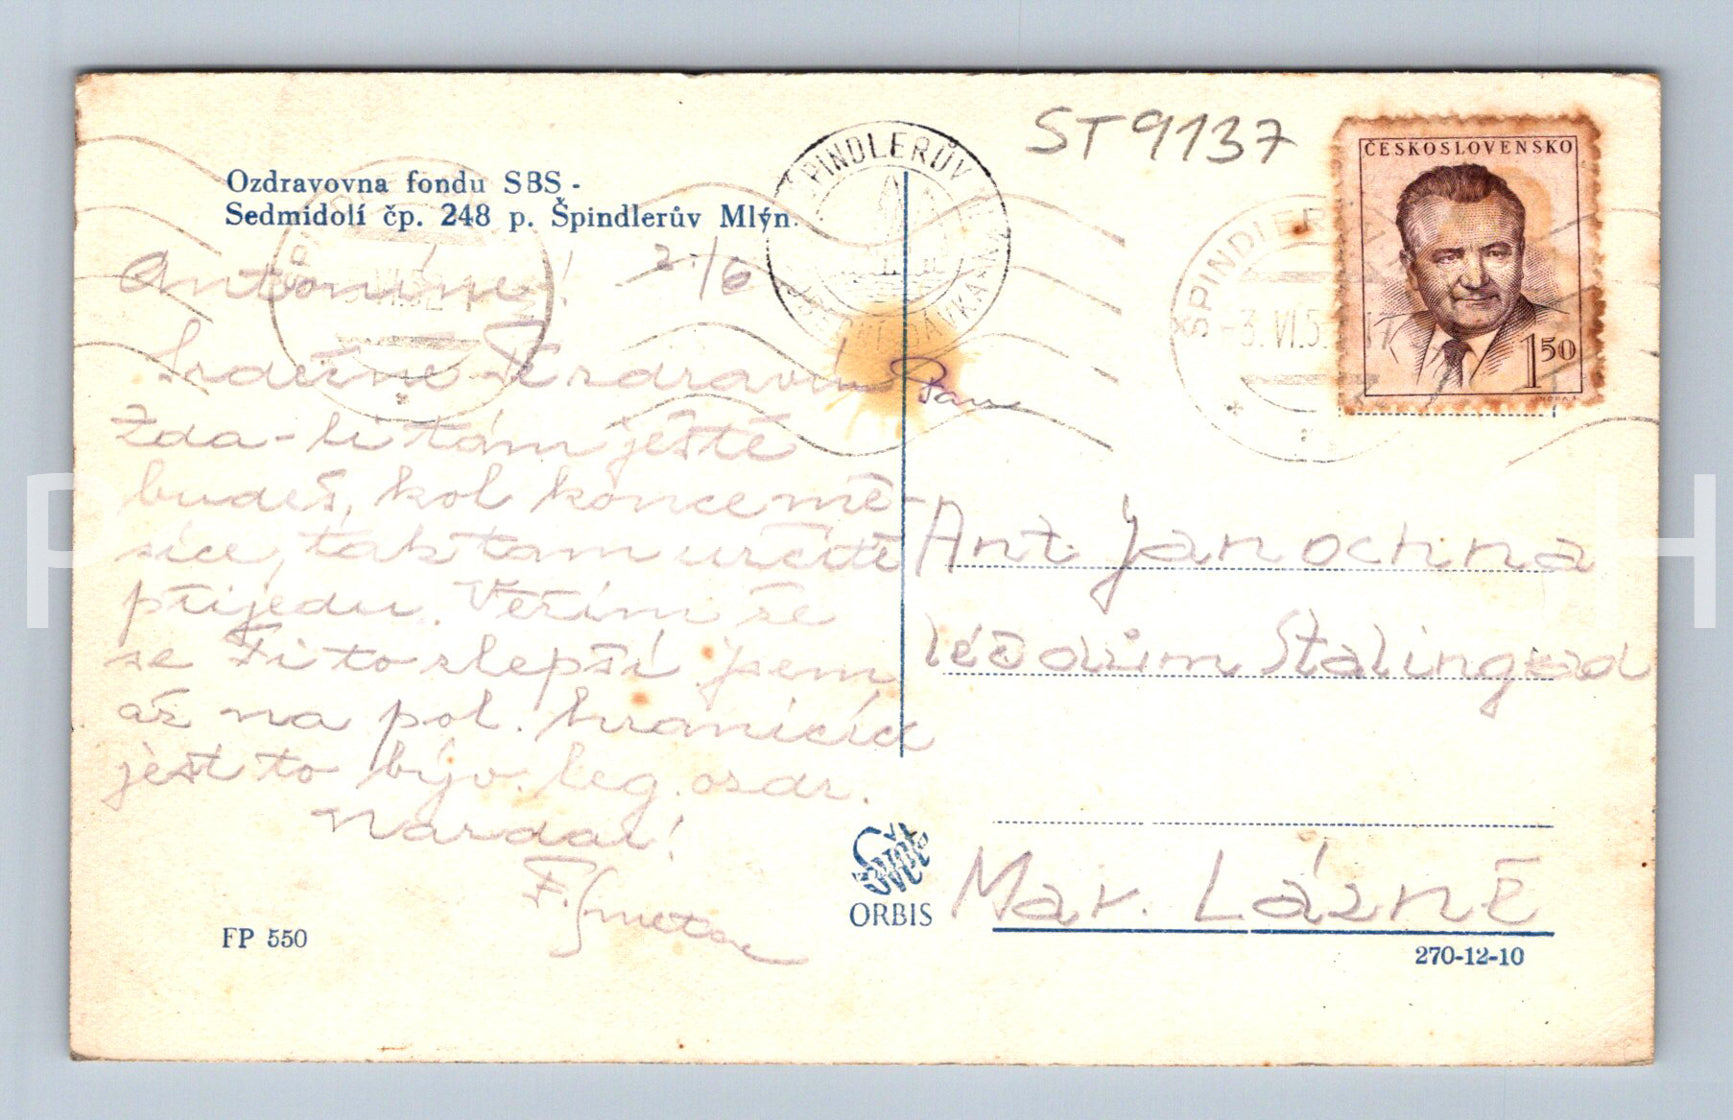 Ozdravovna fondu SBS -
Sedmidolí čp. 248 p. Špindlerův Mlýn.
ST 9137
ČESKOSLOVENSKO
1 50
ŠPINDLERŮV
ŠPINDLERŮV
-3.VI.5
Antoníne! 2./6
Srdečně Tě zdravím
Pan
Zda-li tam ještě
budeš, kol konce mě-
síce, tak tam určitě
přijedu. Věřím že
se Ti to zlepší jsem
až na pol. hranicích
jest to býv. leg. ozdr.
Nazdar!
F. Smetan
Ant Janochna
léč dům Stalingrad
Mar. Lázně
Svět
ORBIS
FP 550
270-12-10
P H